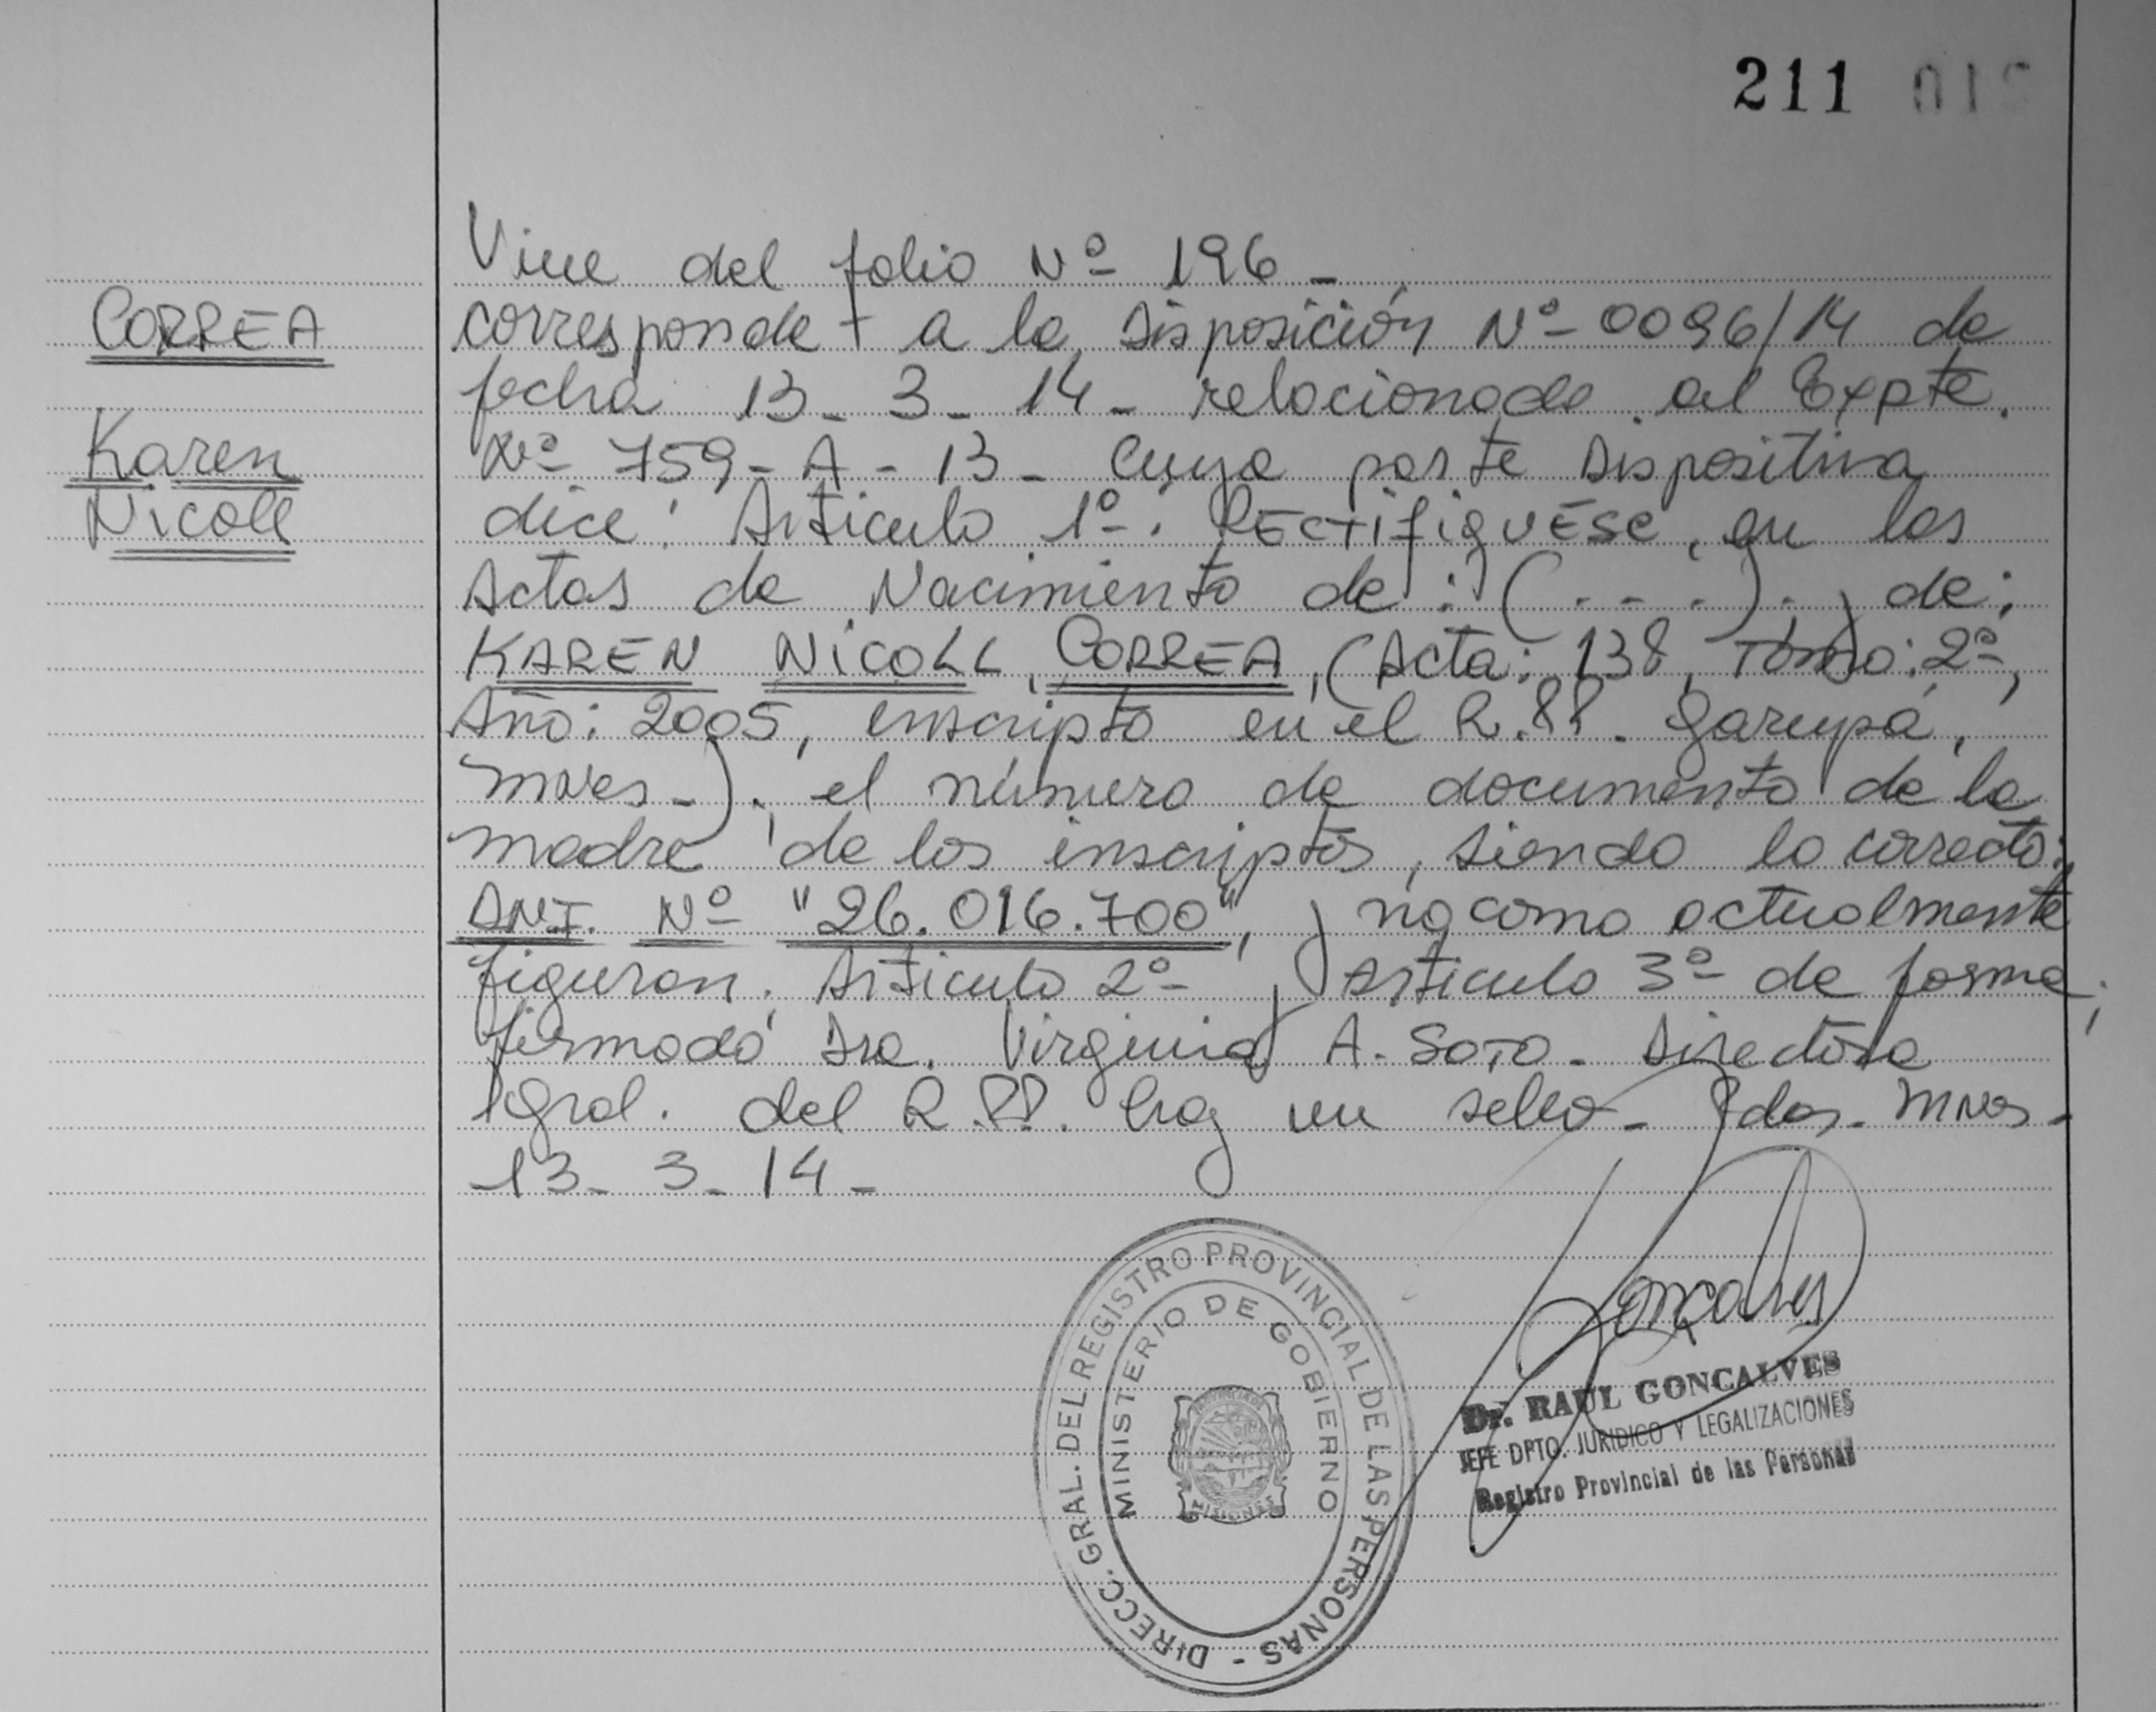 211 012
Vine del folio Nº 196 -
CORREA
corresponde - a la Disposición Nº 0096/14 de
fecha 13 - 3 - 14 - relacionado al Expte.
Karen
Nº 759 - A - 13 - Cuya parte Dispositiva
Nicoll
dice: Articulo 1º. RECTIFIQUESE, en las
Actas de Nacimiento de: (. - - .). y de:
KAREN NICOLL CORREA, (Acta: 138, Tomo: 2º,
Año: 2005, inscripto en el R.PP. Garupá,
Mnes-). el número de documento de la
madre de los inscriptos, siendo lo correcto:
DNI. Nº "26.016.700", y no como actualmente
figuran. Articulo 2º y Articulo 3º de forma;
firmado Dra. Virginia A. Soto - Directora
Gral. del R.PP. hay un sello - Pdas. Mnes -
13 - 3 - 14 -
DIRECC. GRAL. DEL REGISTRO PROVINCIAL DE LAS PERSONAS -
MINISTERIO DE GOBIERNO
MISIONES
Goncalves
Dr. RAUL GONCALVES
JEFE DPTO. JURIDICO Y LEGALIZACIONES
Registro Provincial de las Personas